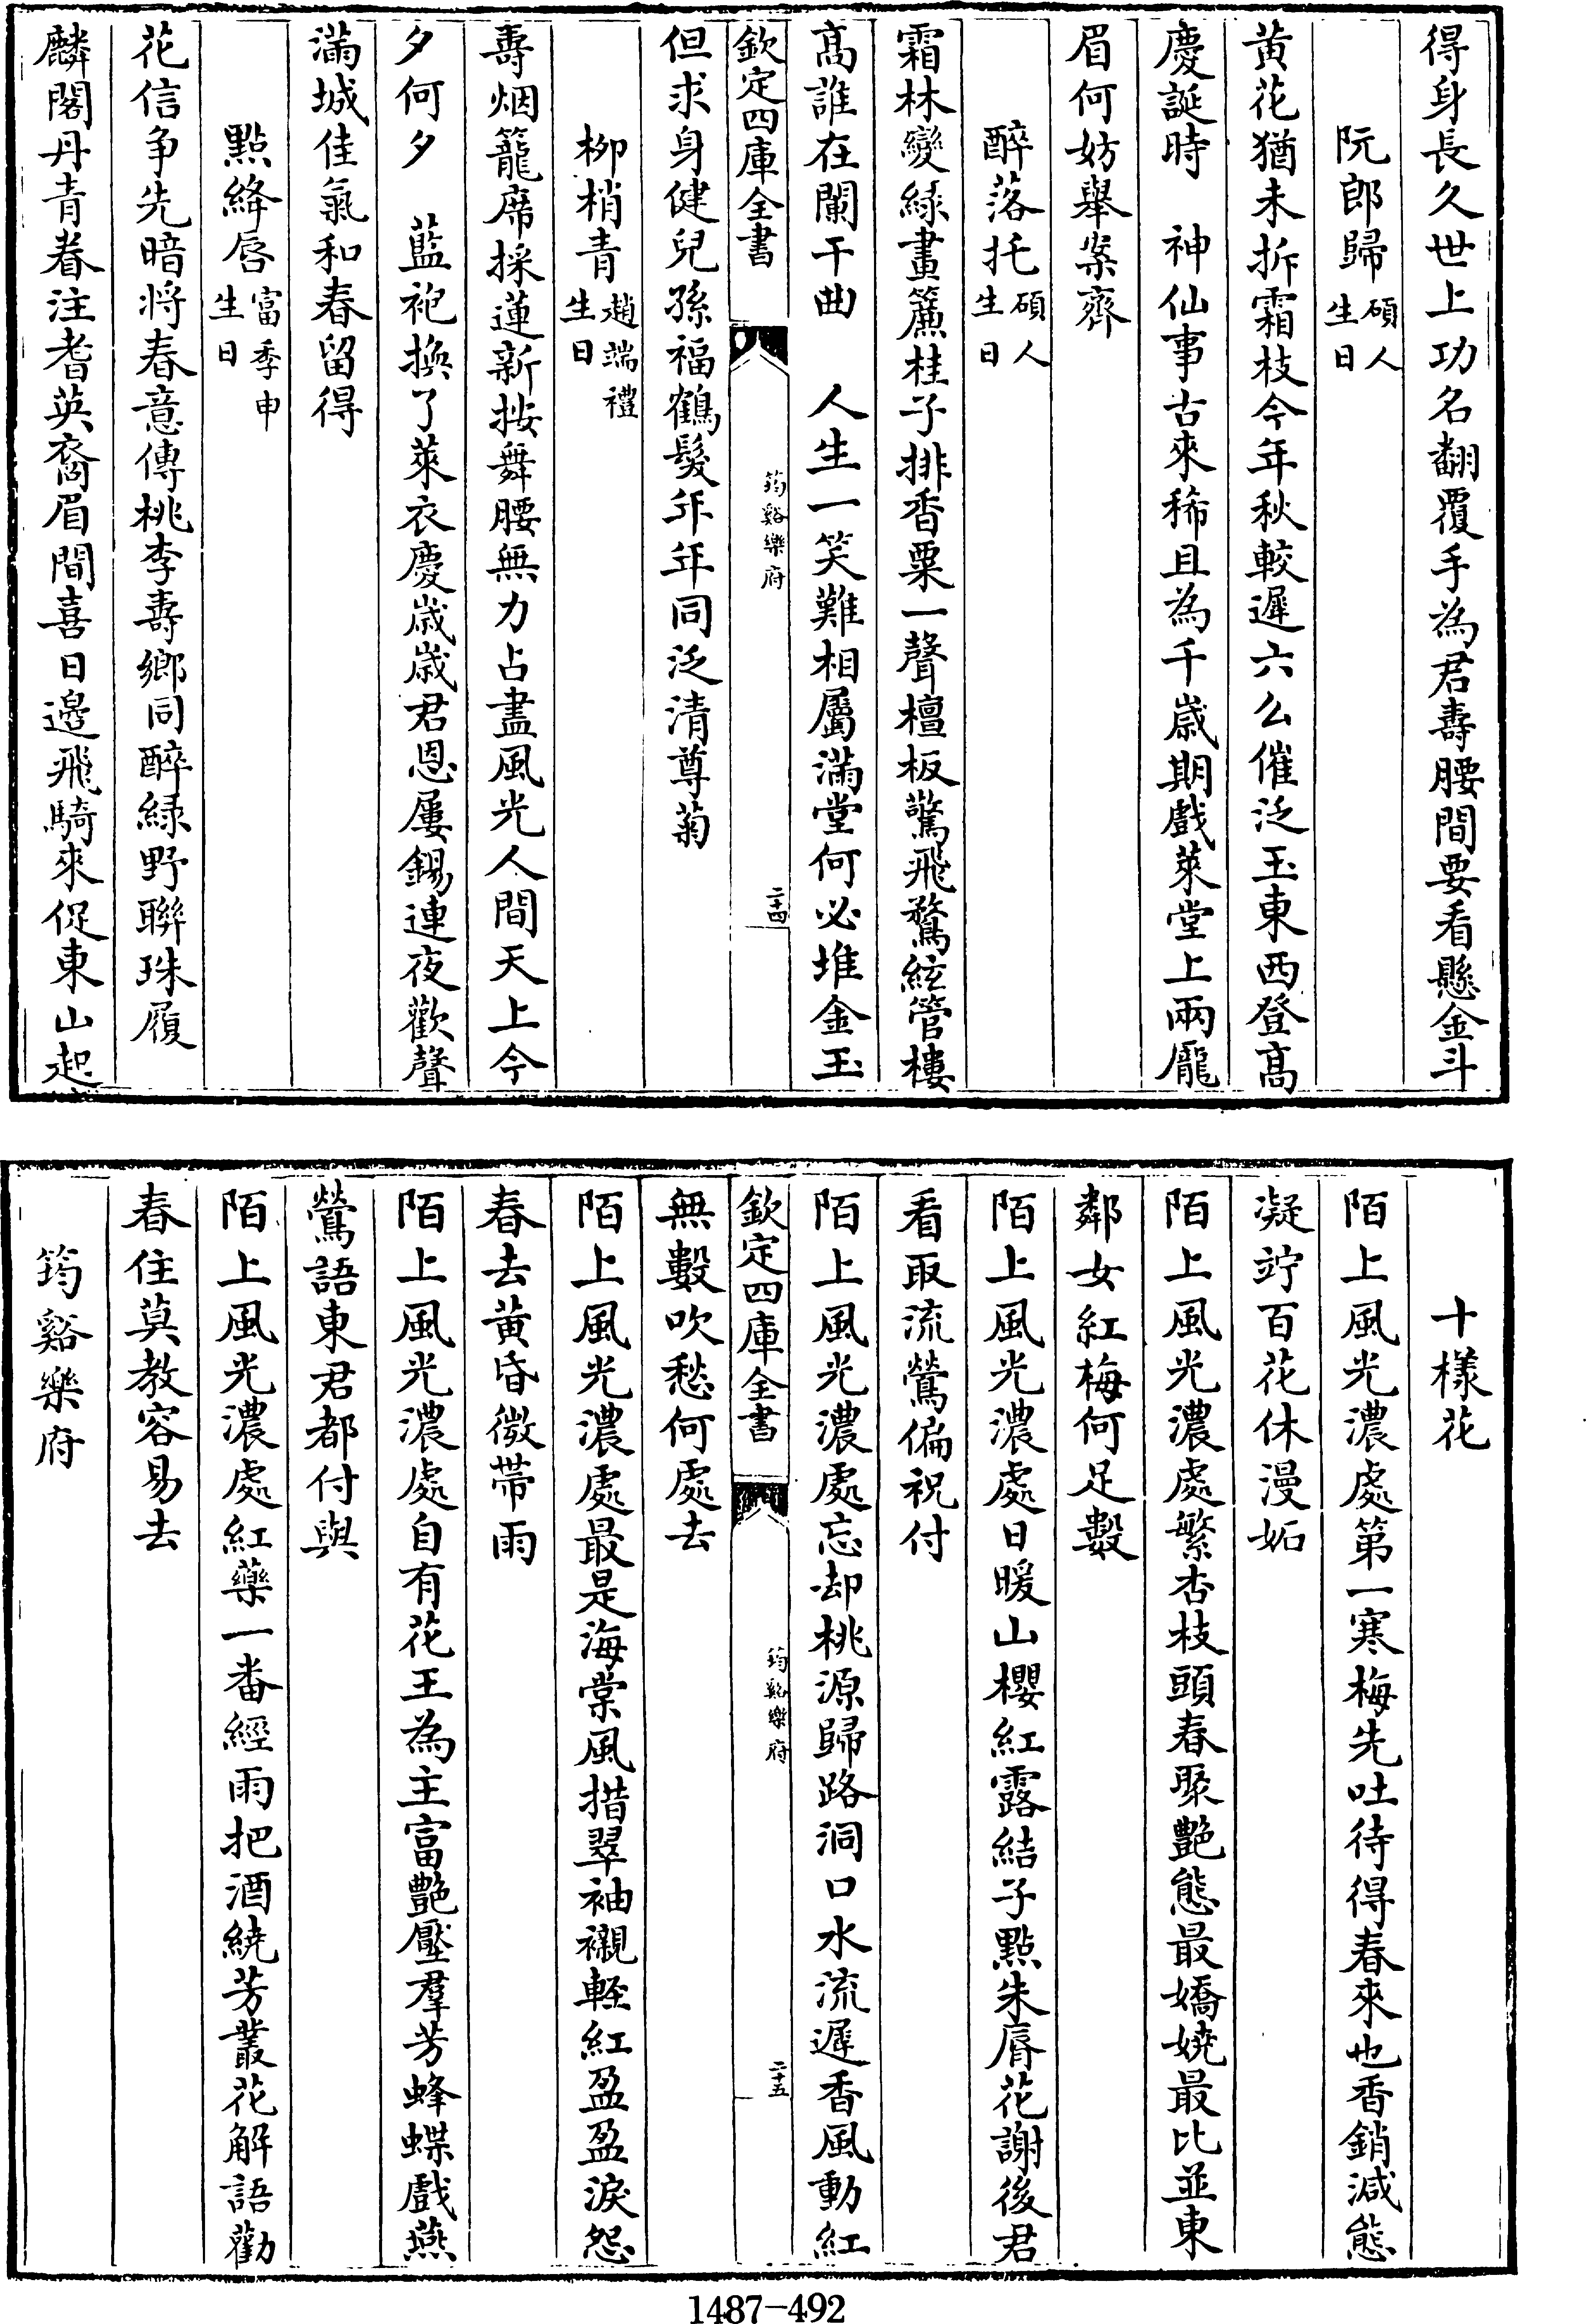 得身長久世上功名翻覆手為君壽腰間要看懸金斗
阮郎歸碩人生日
黃花猶未拆霜枝今年秋較遲六么催泛玉東西登高
慶誕時　神仙事古來稀且為千歲期戲萊堂上兩龐
眉何妨舉案齊
醉落托碩人生日
霜林變綠畫簾桂子排香粟一聲檀板驚飛鶩絃管樓
高誰在闌干曲　人生一笑難相屬滿堂何必堆金玉
欽定四庫全書
筠谿樂府
二十四
但求身健兒孫福鶴髮年年同泛清尊菊
栁梢青趙端禮生日
壽烟籠席採蓮新按舞腰無力占盡風光人間天上今
夕何夕　藍袍換了萊衣慶歲歲君恩屢錫連夜歡聲
滿城佳氣和春留得
點絳唇富季申生日
花信爭先暗將春意傳桃李壽鄉同醉綠野聯珠履
麟閣丹青眷注耆英裔眉間喜日邊飛騎來促東山起
十樣花
陌上風光濃處第一寒梅先吐待得春來也香銷減態
凝竚百花休漫妬
陌上風光濃處繁杏枝頭春聚艷態最嬌嬈最比並東
鄰女紅梅何足數
陌上風光濃處日暖山櫻紅露結子點朱脣花謝後君
看取流鶯偏祝付
陌上風光濃處忘却桃源歸路洞口水流遲香風動紅
欽定四庫全書
筠谿樂府
二十五
無數吹愁何處去
陌上風光濃處最是海棠風措翠袖襯輕紅盈盈淚怨
春去黃昏微帶雨
陌上風光濃處自有花王為主富艷壓羣芳蜂蝶戲燕
鶯語東君都付與
陌上風光濃處紅藥一番經雨把酒繞芳叢花解語勸
春住莫教容易去
筠谿樂府
1487-492